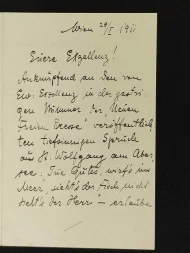 Wien 29/I 1911
Euere Exzellenz!
Anknüpfend an den von
Eu. Exzellenz in der gestri-
gen Nummer der "Neuen
Freien Presse" veröffentlich-
ten tiefsinnigen Spruch
aus St. Wolfgang am Aber-
see: "Tue Gutes, wirf's ins
Meer, sieht's der Fisch nicht
sieht's der Herr" - erlauben